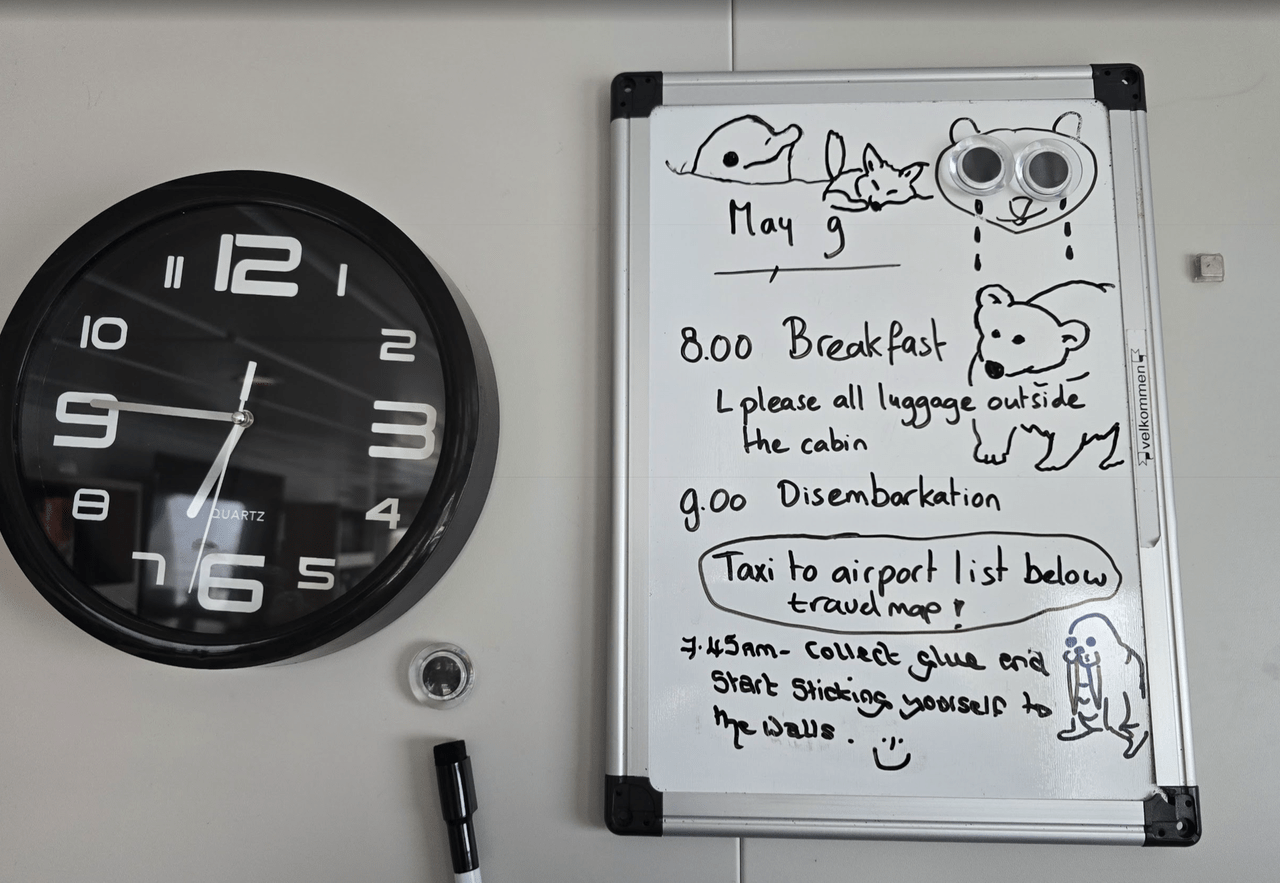 12
11
1
10
2
9
3
8
4
QUARTZ
7
5
6
May 9
8.00 Breakfast
L please all luggage outside
the cabin
9.00 Disembarkation
Taxi to airport list below
travel map!
7.45AM- Collect glue and
Start Sticking yourself to
the walls.
velkommen